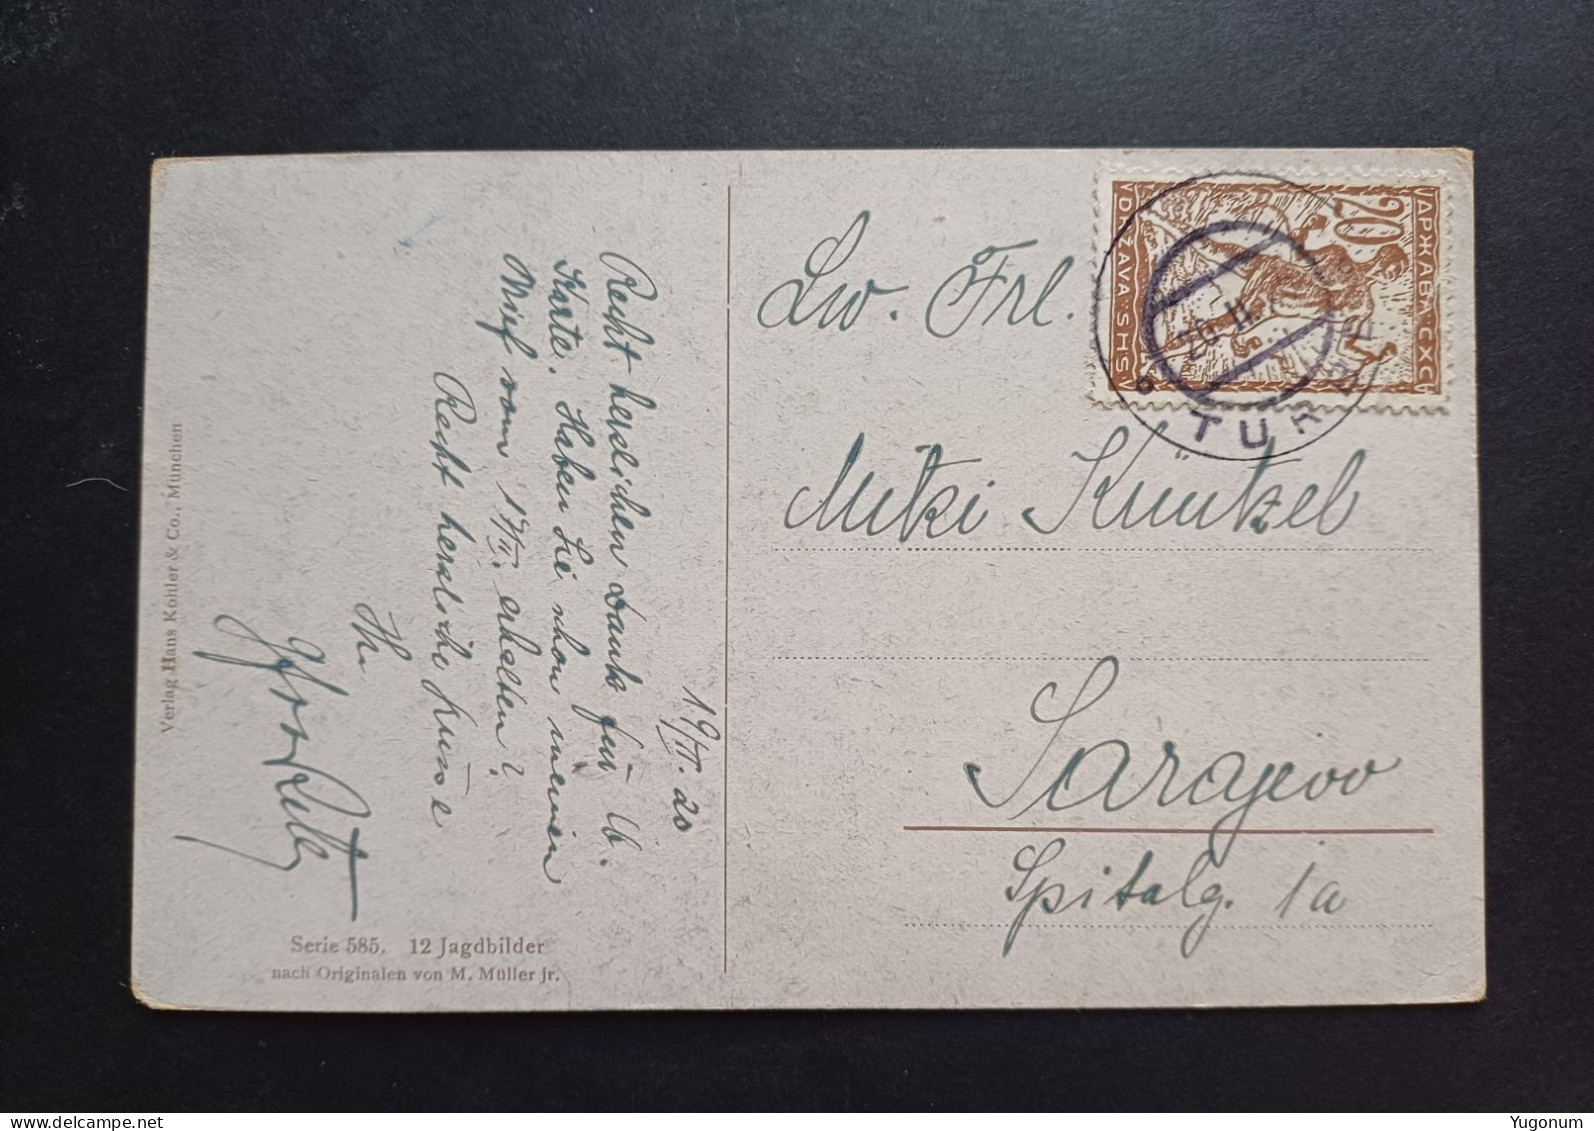 19/II. 20
Recht herzlichen Dank für lb.
Karte. Haben Sie schon meinen
Brief vom 17/II. erhalten?
Recht herzliche Küsse
Ihr
Verlag Hans Köhler & Co., München
Serie 585. 12 Jagdbilder
nach Originalen von M. Müller jr.
ДРЖАВА СХС
20
DRŽAVA SHS
20. II.
TUR
Lw. Frl.
Mitzi Küntzel
Sarajevo
Spitalg. 1a
Yugonum